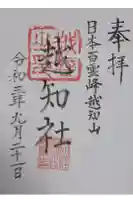 奉拝
日本百霊峰越知山
越知社
令和三年九月二十一日